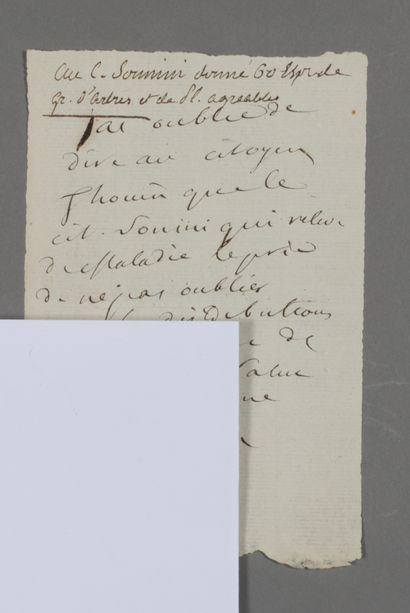 au C. Sonnini donné 60 Esp. de
gr. d'arbres et de pl. agreables
J'ai oublié de
dire au citoyen
Thouin que le
cit. Sonini qui releve
de Maladie le prie
de ne pas oublier
distributions
de
Salue